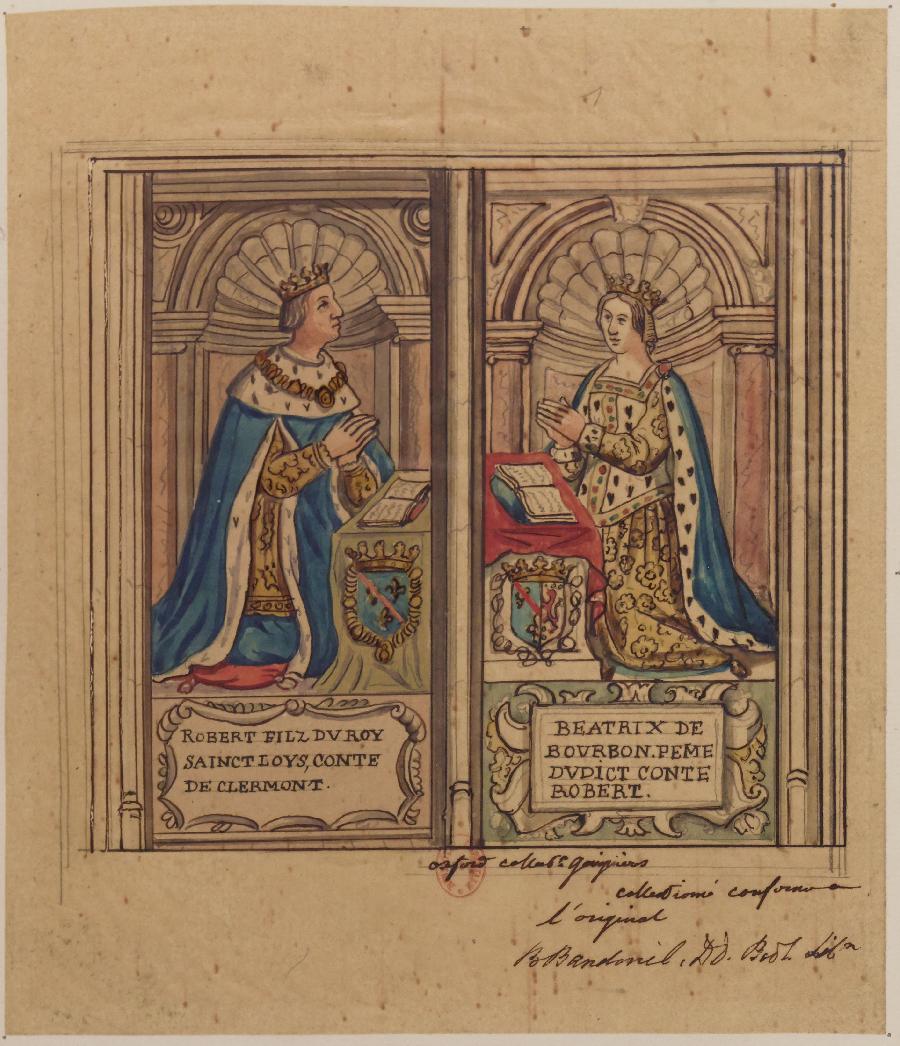 ROBERT FILZ DV ROY
SAINCT LOYS, CONTE
DE CLERMONT.
BEATRIX DE
BOURBON. PEME
DVDICT CONTE
ROBERT.
oxford collect.
collationné conforme a
l'original
B Bandinel, DD. Bodl Libn